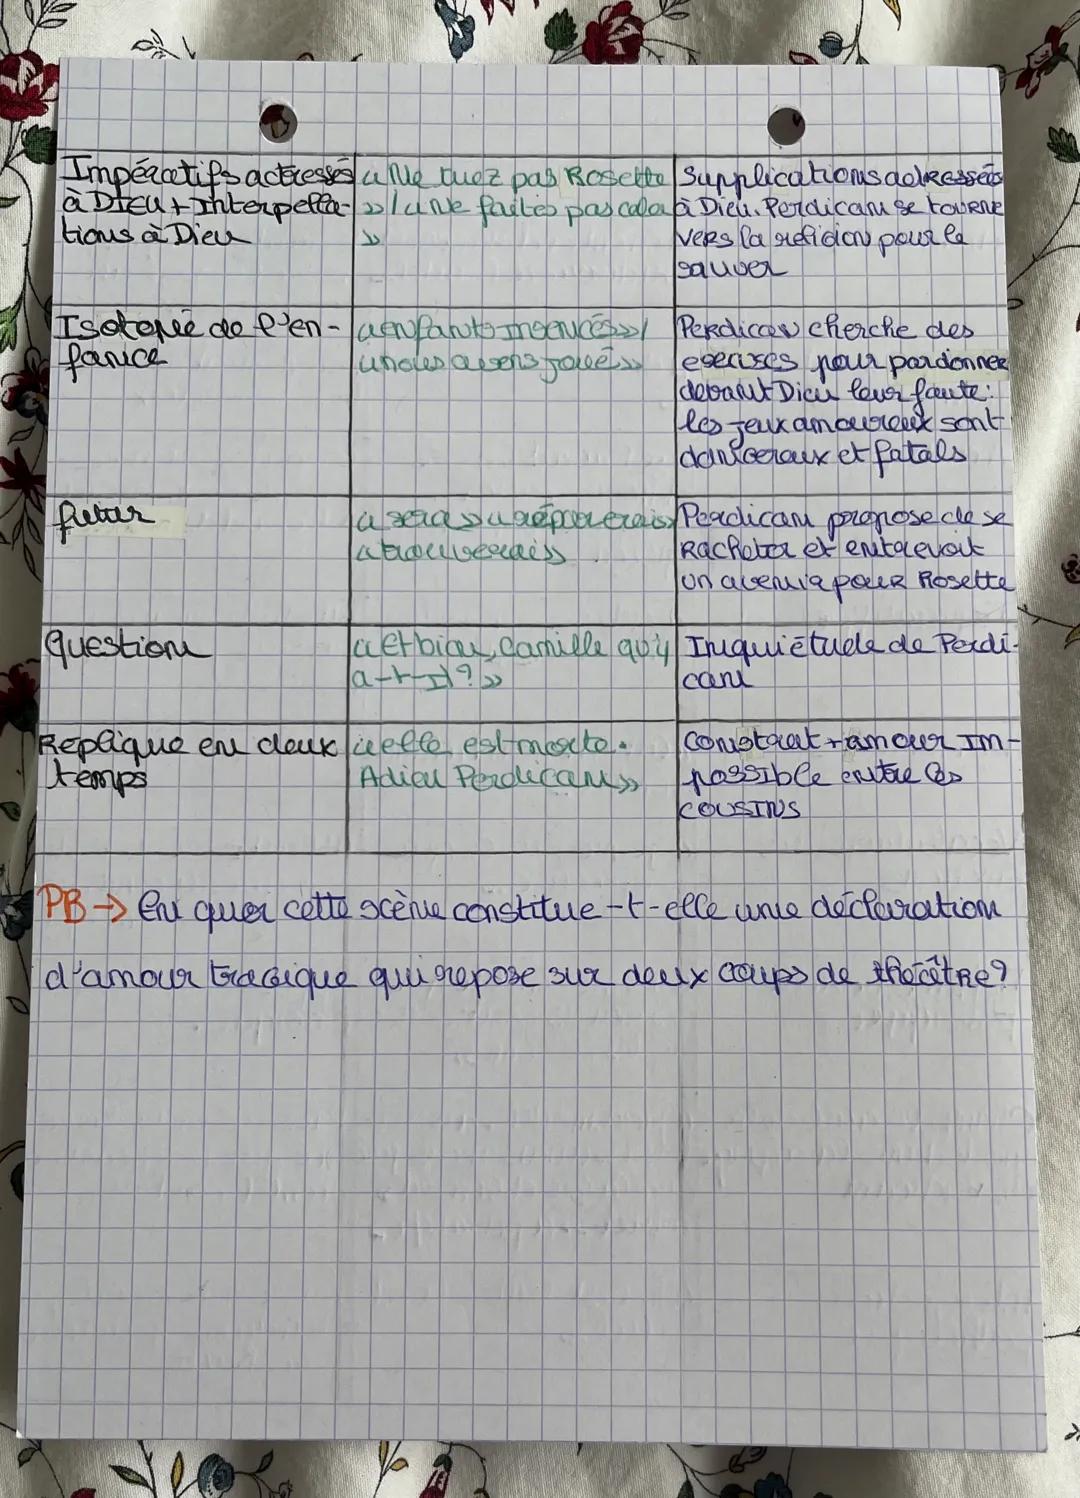 Impératifs adressés
à Dieu + Interpella-
tions à Dieu
« Ne tuez pas Rosette
»/« Ne faites pas cela
»
Supplications adressées
à Dieu. Perdican se tourne
vers la religion pour le
sauver
Isotopie de l'en-
fance
« enfants insensés »/
« nous avons joué »
Perdican cherche des
excuses pour pardonner
devant Dieu leur faute:
les jeux amoureux sont
dangeraux et fatals
futur
« sera » « réparerais »
« trouverais »
Perdican propose de se
racheter et entrevoit
un avenir pour Rosette
Question
« Et bien, Camille qu'y
a-t-il? »
Inquiétude de Perdi-
can
Replique en deux
temps
« elle est morte.
Adieu Perdican »
Constat + amour im-
possible entre les
cousins
PB → En quoi cette scène constitue-t-elle une déclaration
d'amour tragique qui repose sur deux coups de théâtre?